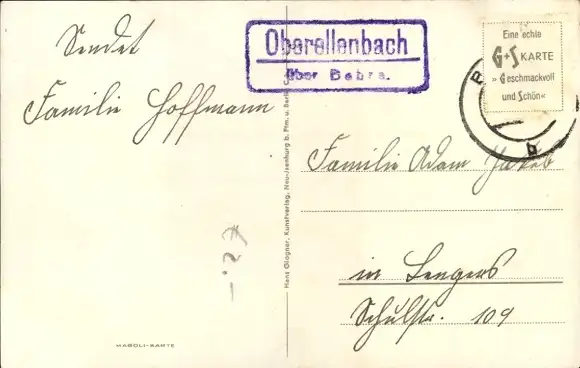 Sendet
Familie Hoffmann
Oberellenbach
über Bebra.
Eine echte
G+S KARTE
» Geschmackvoll
und Schön«
b
Hans Glogner, Kunstverlag, Neu-Isenburg b. Ffm. u. Berlin
Familie Adam Jakob
in Lengers
Schulstr. 109
MAGOLI-KARTE